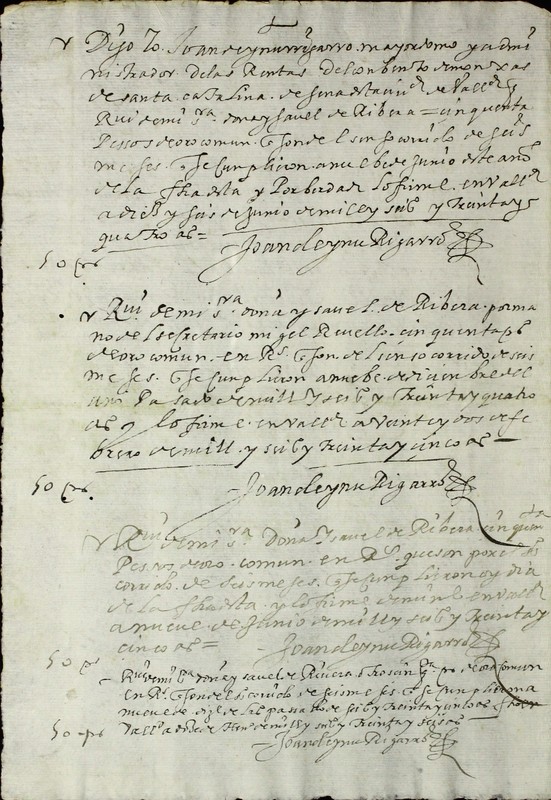 Digo Yo Joan de ynurrigarro mayordomo y admi
nistrador de las Rentas del conbento de monxas
de santa catalina de sena desta ciud de Vallid q
Rui de mi sra doña ysavel de Ribera = cinquenta
Pessos de oro comun q son del censo corrido de seis
meses q se cunplieron a nuebe de Junio deste año
de la fha desta y Por berdad lo firme en Vallid
a diez y seis de Junio de mill y seisº y treinta y
quatro as =
50 ps
Joan de ynurrigarro
Rui de mi sra doña ysavel de Ribera por ma
no del secretario migel Revello cinquenta ps
de oro comun en Rs q son del censo corrido de seis
meses q se cunplieron a nuebe de diciembre del
año Pasado de mill y seisº y treinta y quatro
as y lo firme en Vallid a veinte y dos de fe
brero de mill y seisº y treinta y cinco as
50 ps
Joan de ynurrigarro
Rui de mi sra Doña Ysavel de Ribera cinquenta
Pessos de oro comun en Rs que son por los
corrido de seis meses q se cunplieron oy dia
de la fha desta y lo firme de mi nre en Vallid
a nueve de Junio de mill y seisº y treinta y
cinco as =
Joan de ynurrigarro
50 ps
Rui de mi sra doña ysavel de Rivera otros cinqta ps de oro comun
en Rs q son del corrido de seis meses q se cunplieron a
nueve de dizre del pasado de seisº y treinta y cinco as fha en
Vallid a de de mill y seisº y treinta y seis as
50 ps
Joan de ynurrigarro